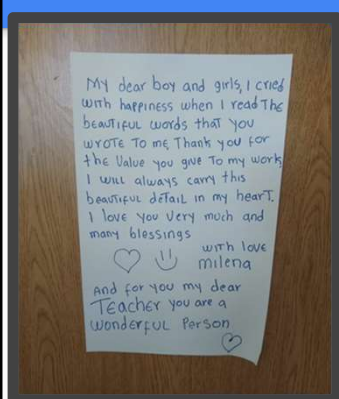 My dear boy and girls, I cried
with happiness when I read The
beautiful words that you
wrote To me, Thank you for
the Value you give To my work,
I will always carry this
beautiful detail in my heart.
I love you very much and
many blessings
with love
milena
And for you my dear
Teacher you are a
wonderful Person